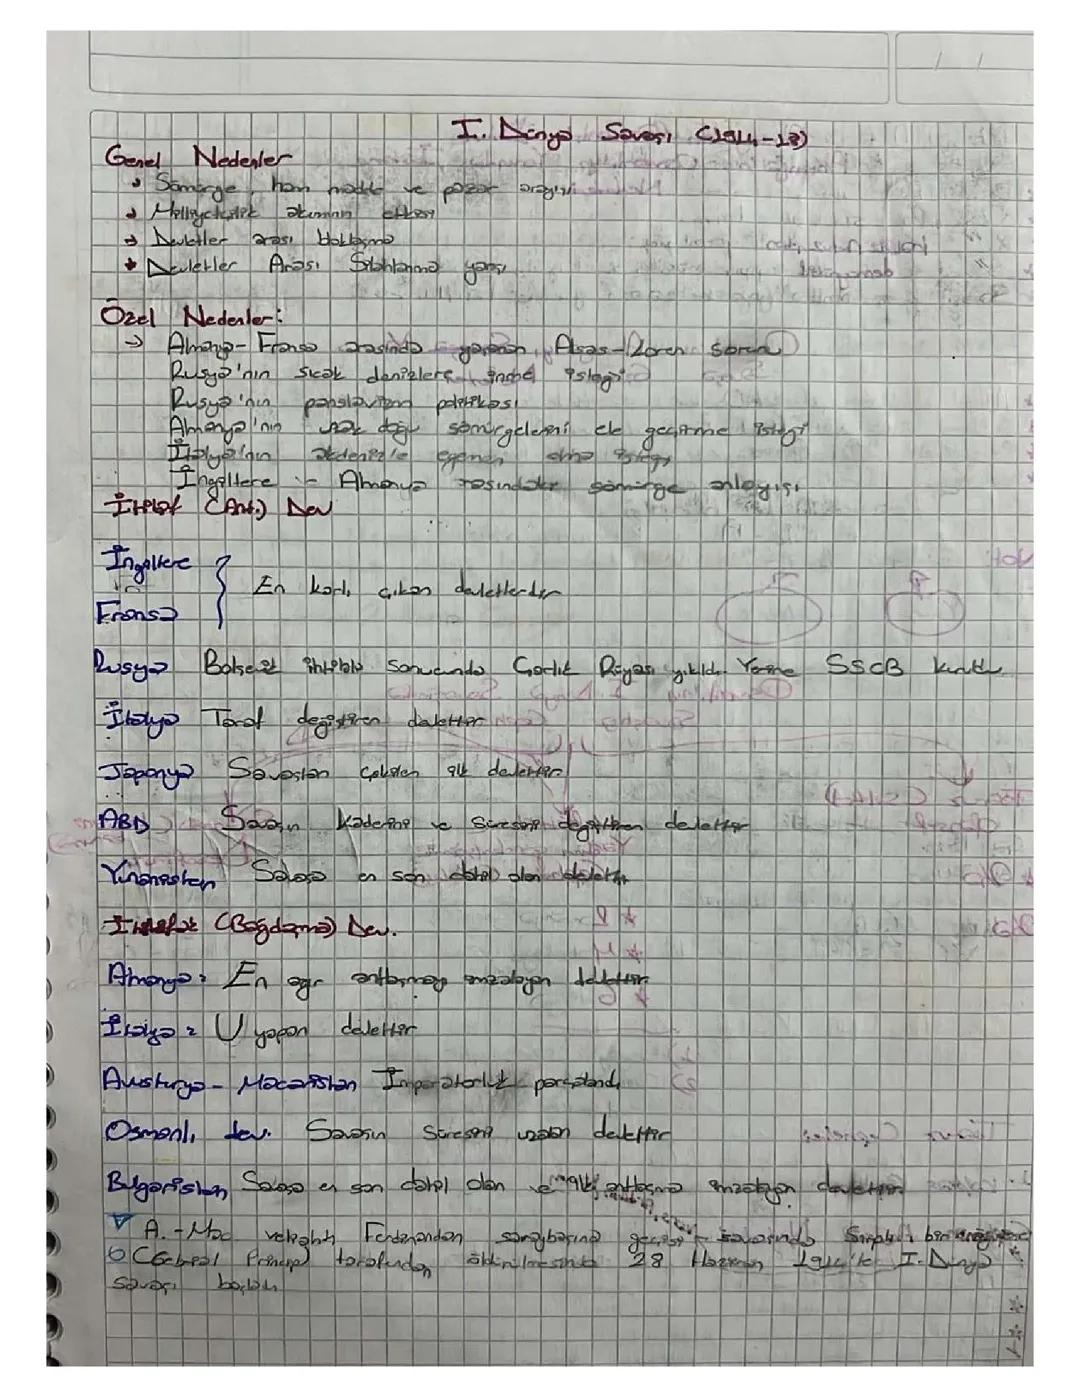 I. Dünya Savaşı (1914-18)
Genel Nedenler
Sömürge, ham madde ve pazar arayışı
Milliyetçilik akımının etkisi
Devletler arası bloklaşma
Devletler Arası Silahlanma yarışı
Özel Nedenler:
→ Almanya-Fransa arasında yaşanan Alsas-Loren sorunu
Rusya'nın sıcak denizlere inme isteği
Rusya'nın panslavizm politikası
Almanya'nın uzak doğu sömürgelerini ele geçirme isteği
İtalya'nın akdeniz'e egemen olma isteği
İngiltere - Almanya arasındaki sömürge anlayışı
İtilaf (Ant.) Dev
İngiltere
En karlı çıkan devletlerdir
Fransa
Rusya Bolşevik ihtilali sonucunda Çarlık Rusyası yıkıldı. Yerine SSCB kuruldu.
İtalya Taraf değiştiren devlettir
Japonya Savaştan çekilen ilk devlettir
ABD Savaşın kaderini ve süresini değiştiren devlettir
Yunanistan Savaşa en son dahil olan devlettir
İttifak (Bağdaşma) Dev.
Almanya: En ağır antlaşmayı imzalayan devlettir
İtalya: U yapan devlettir
Avusturya-Macaristan İmparatorluk parçalandı
Osmanlı dev. Savaşın süresini uzatan devlettir
Bulgaristan Savaşa en son dahil olan ve ilk antlaşma imzalayan devlettir
A.-Mac veliahtı Ferdinandın saraybosna gezisi sırasında Sırplı bir
(Gabriel Princip tarafından öldürülmesinde 28 Haziran 1914'te I. Dünya
savaşı başladı